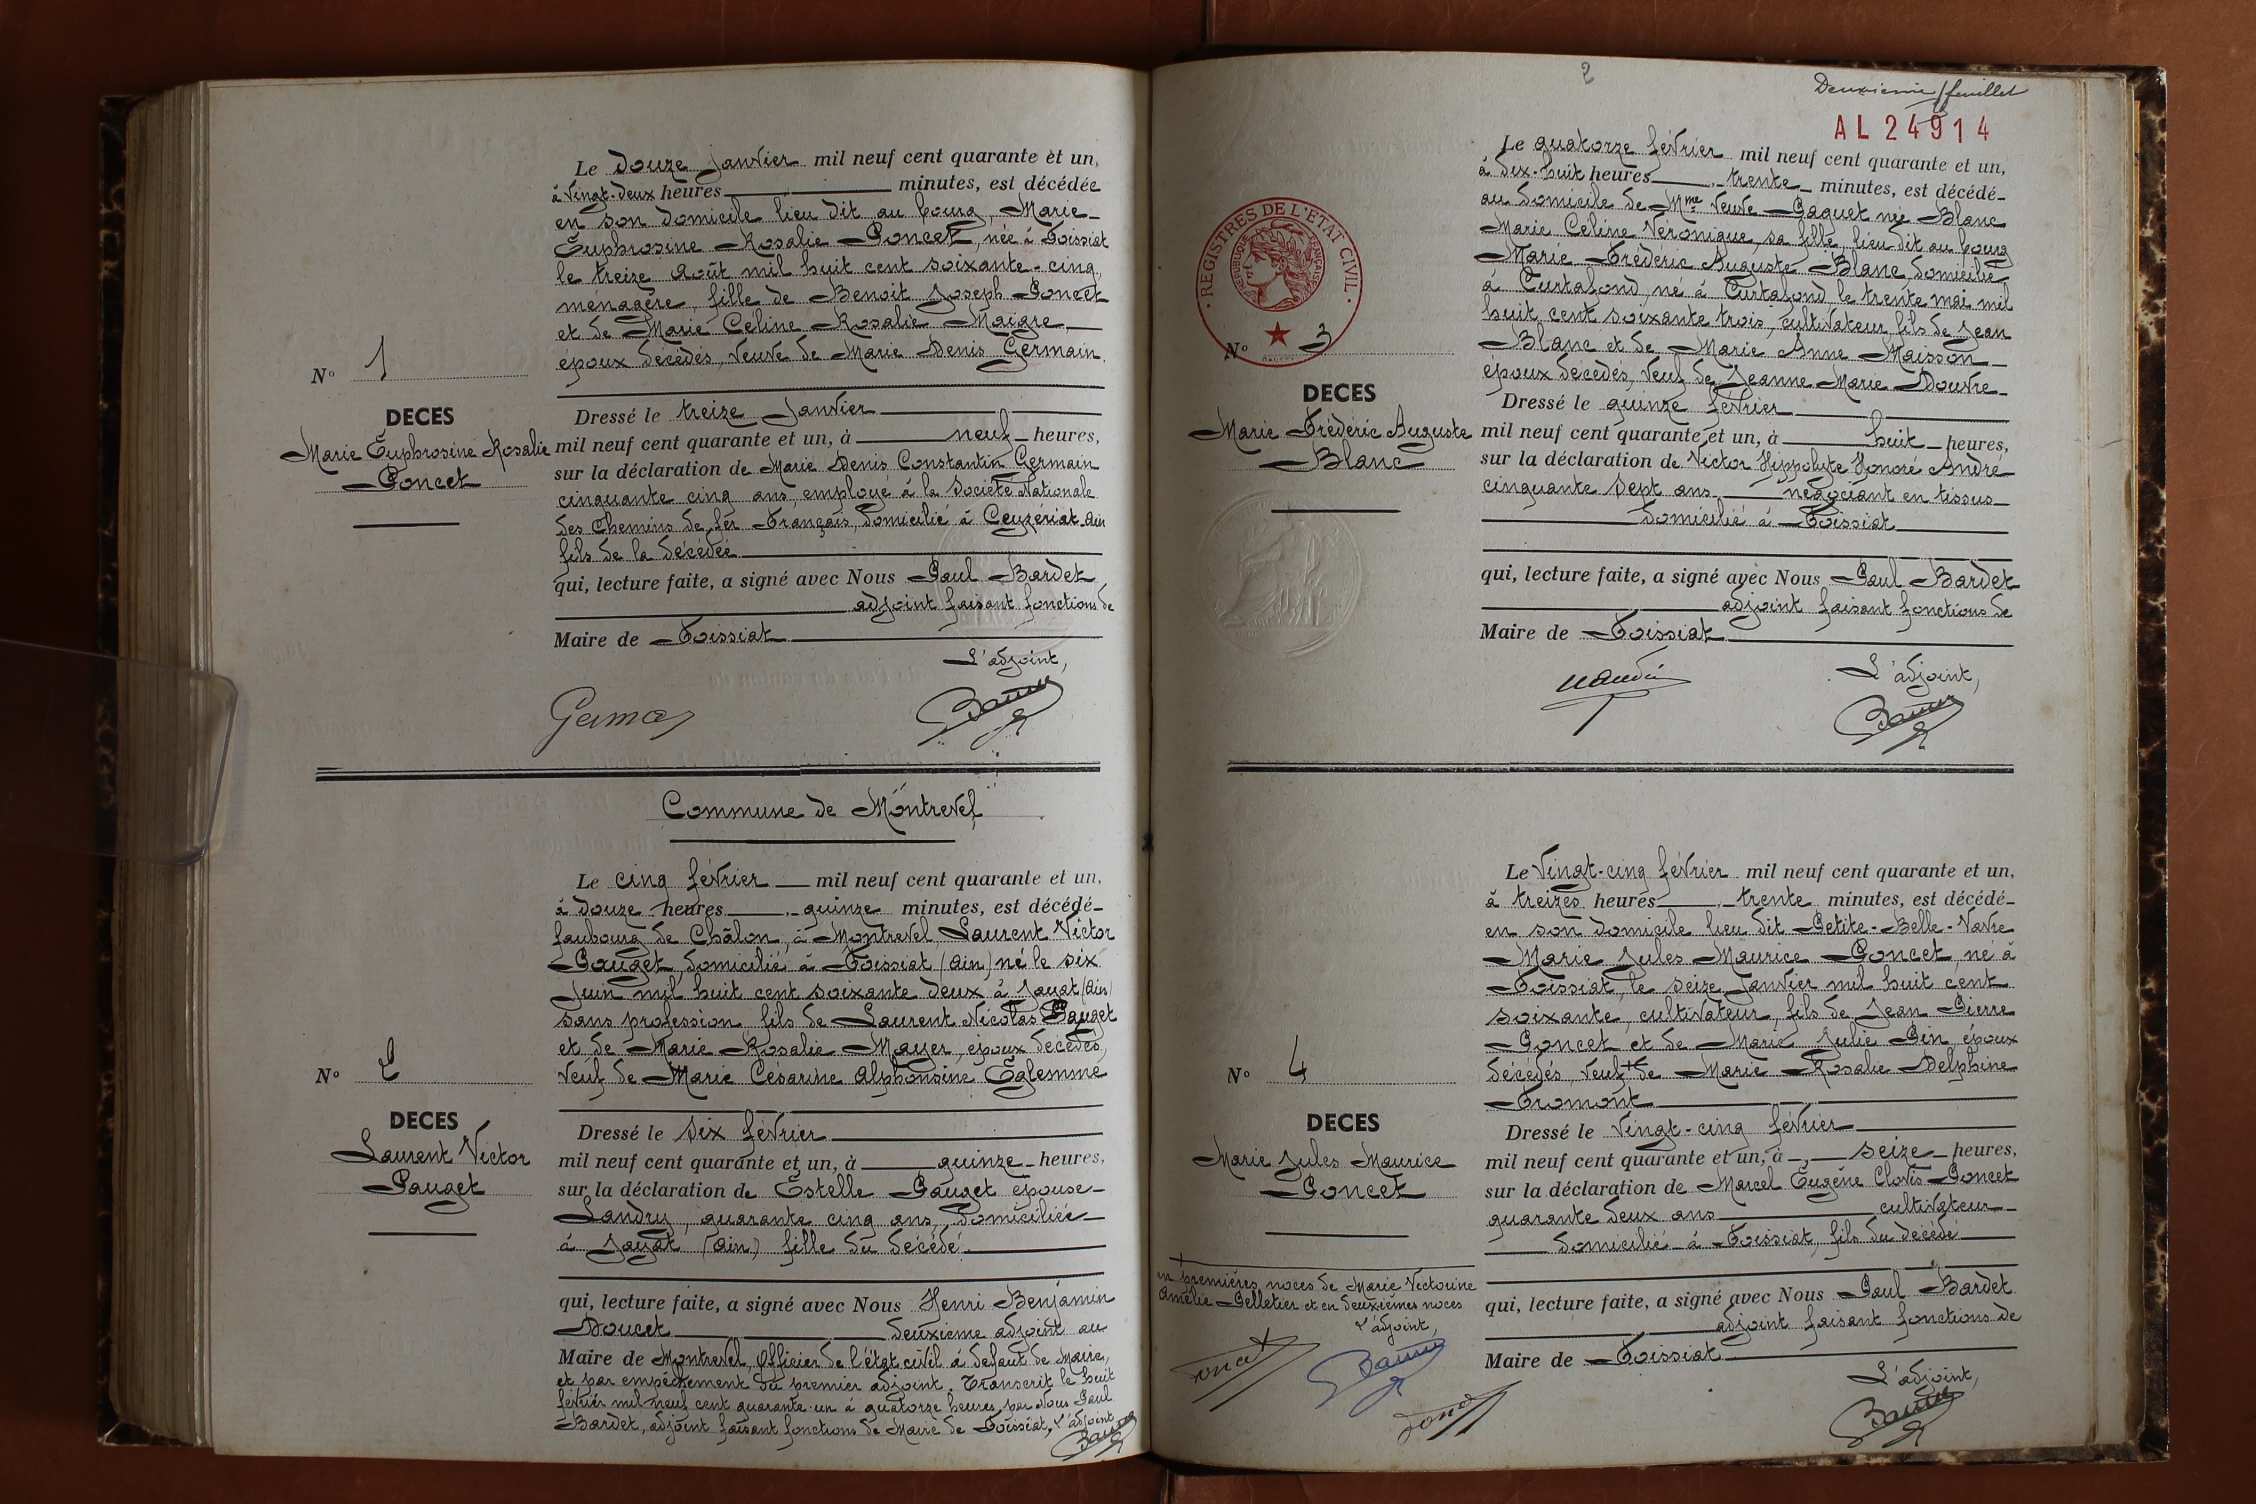 Le douze janvier mil neuf cent quarante et un,
à vingt-deux heures minutes, est décédée
en son domicile lieu dit au bourg, Marie
Euphrosine Rosalie Poncet, née à Foissiat
le treize août mil huit cent soixante-cinq,
ménagère, fille de Benoit Joseph Poncet
et de Marie Céline Rosalie Maigre
époux décédés, veuve de Marie Denis Germain.
N° 1
DECES
Marie Euphrosine Rosalie
Poncet
Dressé le treize janvier
mil neuf cent quarante et un, à neuf heures,
sur la déclaration de Marie Denis Constantin Germain
cinquante cinq ans, employé à la Société Nationale
des Chemins de fer Français, domicilié à Ceyzériat Ain
fils de la décédée
qui, lecture faite, a signé avec Nous Paul Bardet
adjoint faisant fonctions de
Maire de Foissiat
L'adjoint,
Commune de Montrevel
Le cinq février mil neuf cent quarante et un,
à douze heures quinze minutes, est décédé
faubourg de Châlon, à Montrevel Laurent Victor
Pauget, domicilié à Foissiat (Ain) né le six
juin mil huit cent soixante deux à Jayat (Ain)
sans profession fils de Laurent Nicolas Pauget
et de Marie Rosalie Mayer, époux décédés,
veuf de Marie Césarine Alphonsine Eglemme
N° 2
DECES
Laurent Victor
Pauget
Dressé le six février
mil neuf cent quarante et un, à quinze heures,
sur la déclaration de Estelle Pauget épouse
Landry, quarante cinq ans, domiciliée
à Jayat (Ain) fille du décédé
qui, lecture faite, a signé avec Nous Henri Benjamin
Doucet deuxième adjoint au
Maire de Montrevel, Officier de l'état civil à défaut de Maire,
et par empêchement du premier adjoint. Transcrit le huit
février mil neuf cent quarante-un à quatorze heures, par Nous Paul
Bardet, adjoint faisant fonctions de Maire de Foissiat, L'adjoint
2
Deuxième feuillet
AL 24914
Le quatorze février mil neuf cent quarante et un,
à dix-huit heures trente minutes, est décédé
au domicile de Mme Veuve Paquet née Blanc
Marie Céline Véronique, sa fille, lieu dit au bourg
Marie Frédéric Auguste Blanc, domicilié
à Curtafond, né à Curtafond le trente mai mil
huit cent soixante trois, cultivateur, fils de Jean
Blanc et de Marie Anne Maisson
époux décédés, veuf de Jeanne Marie Douvre
REGISTRES DE L'ETAT CIVIL
REPUBLIQUE FRANÇAISE
N° 3
DECES
Marie Frédéric Auguste
Blanc
Dressé le quinze février
mil neuf cent quarante et un, à huit heures,
sur la déclaration de Victor Hippolyte Honoré André
cinquante sept ans négociant en tissus
domicilié à Foissiat
qui, lecture faite, a signé avec Nous Paul Bardet
adjoint faisant fonctions de
Maire de Foissiat
L'adjoint,
Le vingt-cinq février mil neuf cent quarante et un,
à treizes heures trente minutes, est décédé
en son domicile lieu dit Petite-Belle-Vavre
Marie Jules Maurice Poncet, né à
Foissiat, le seize janvier mil huit cent
soixante, cultivateur, fils de Jean Pierre
Poncet et de Marie Julie Pin, époux
décédés, veuf + de Marie Rosalie Delphine
Fromont
N° 4
DECES
Marie Jules Maurice
Poncet
Dressé le vingt-cinq février
mil neuf cent quarante et un, à seize heures,
sur la déclaration de Marcel Eugène Clovis Poncet
quarante deux ans cultivateur
domicilié à Foissiat, fils du décédé
qui, lecture faite, a signé avec Nous Paul Bardet
adjoint faisant fonctions de
Maire de Foissiat
L'adjoint,
+
en premières noces de Marie Victorine
Amélie Pelletier et en deuxièmes noces
L'adjoint,